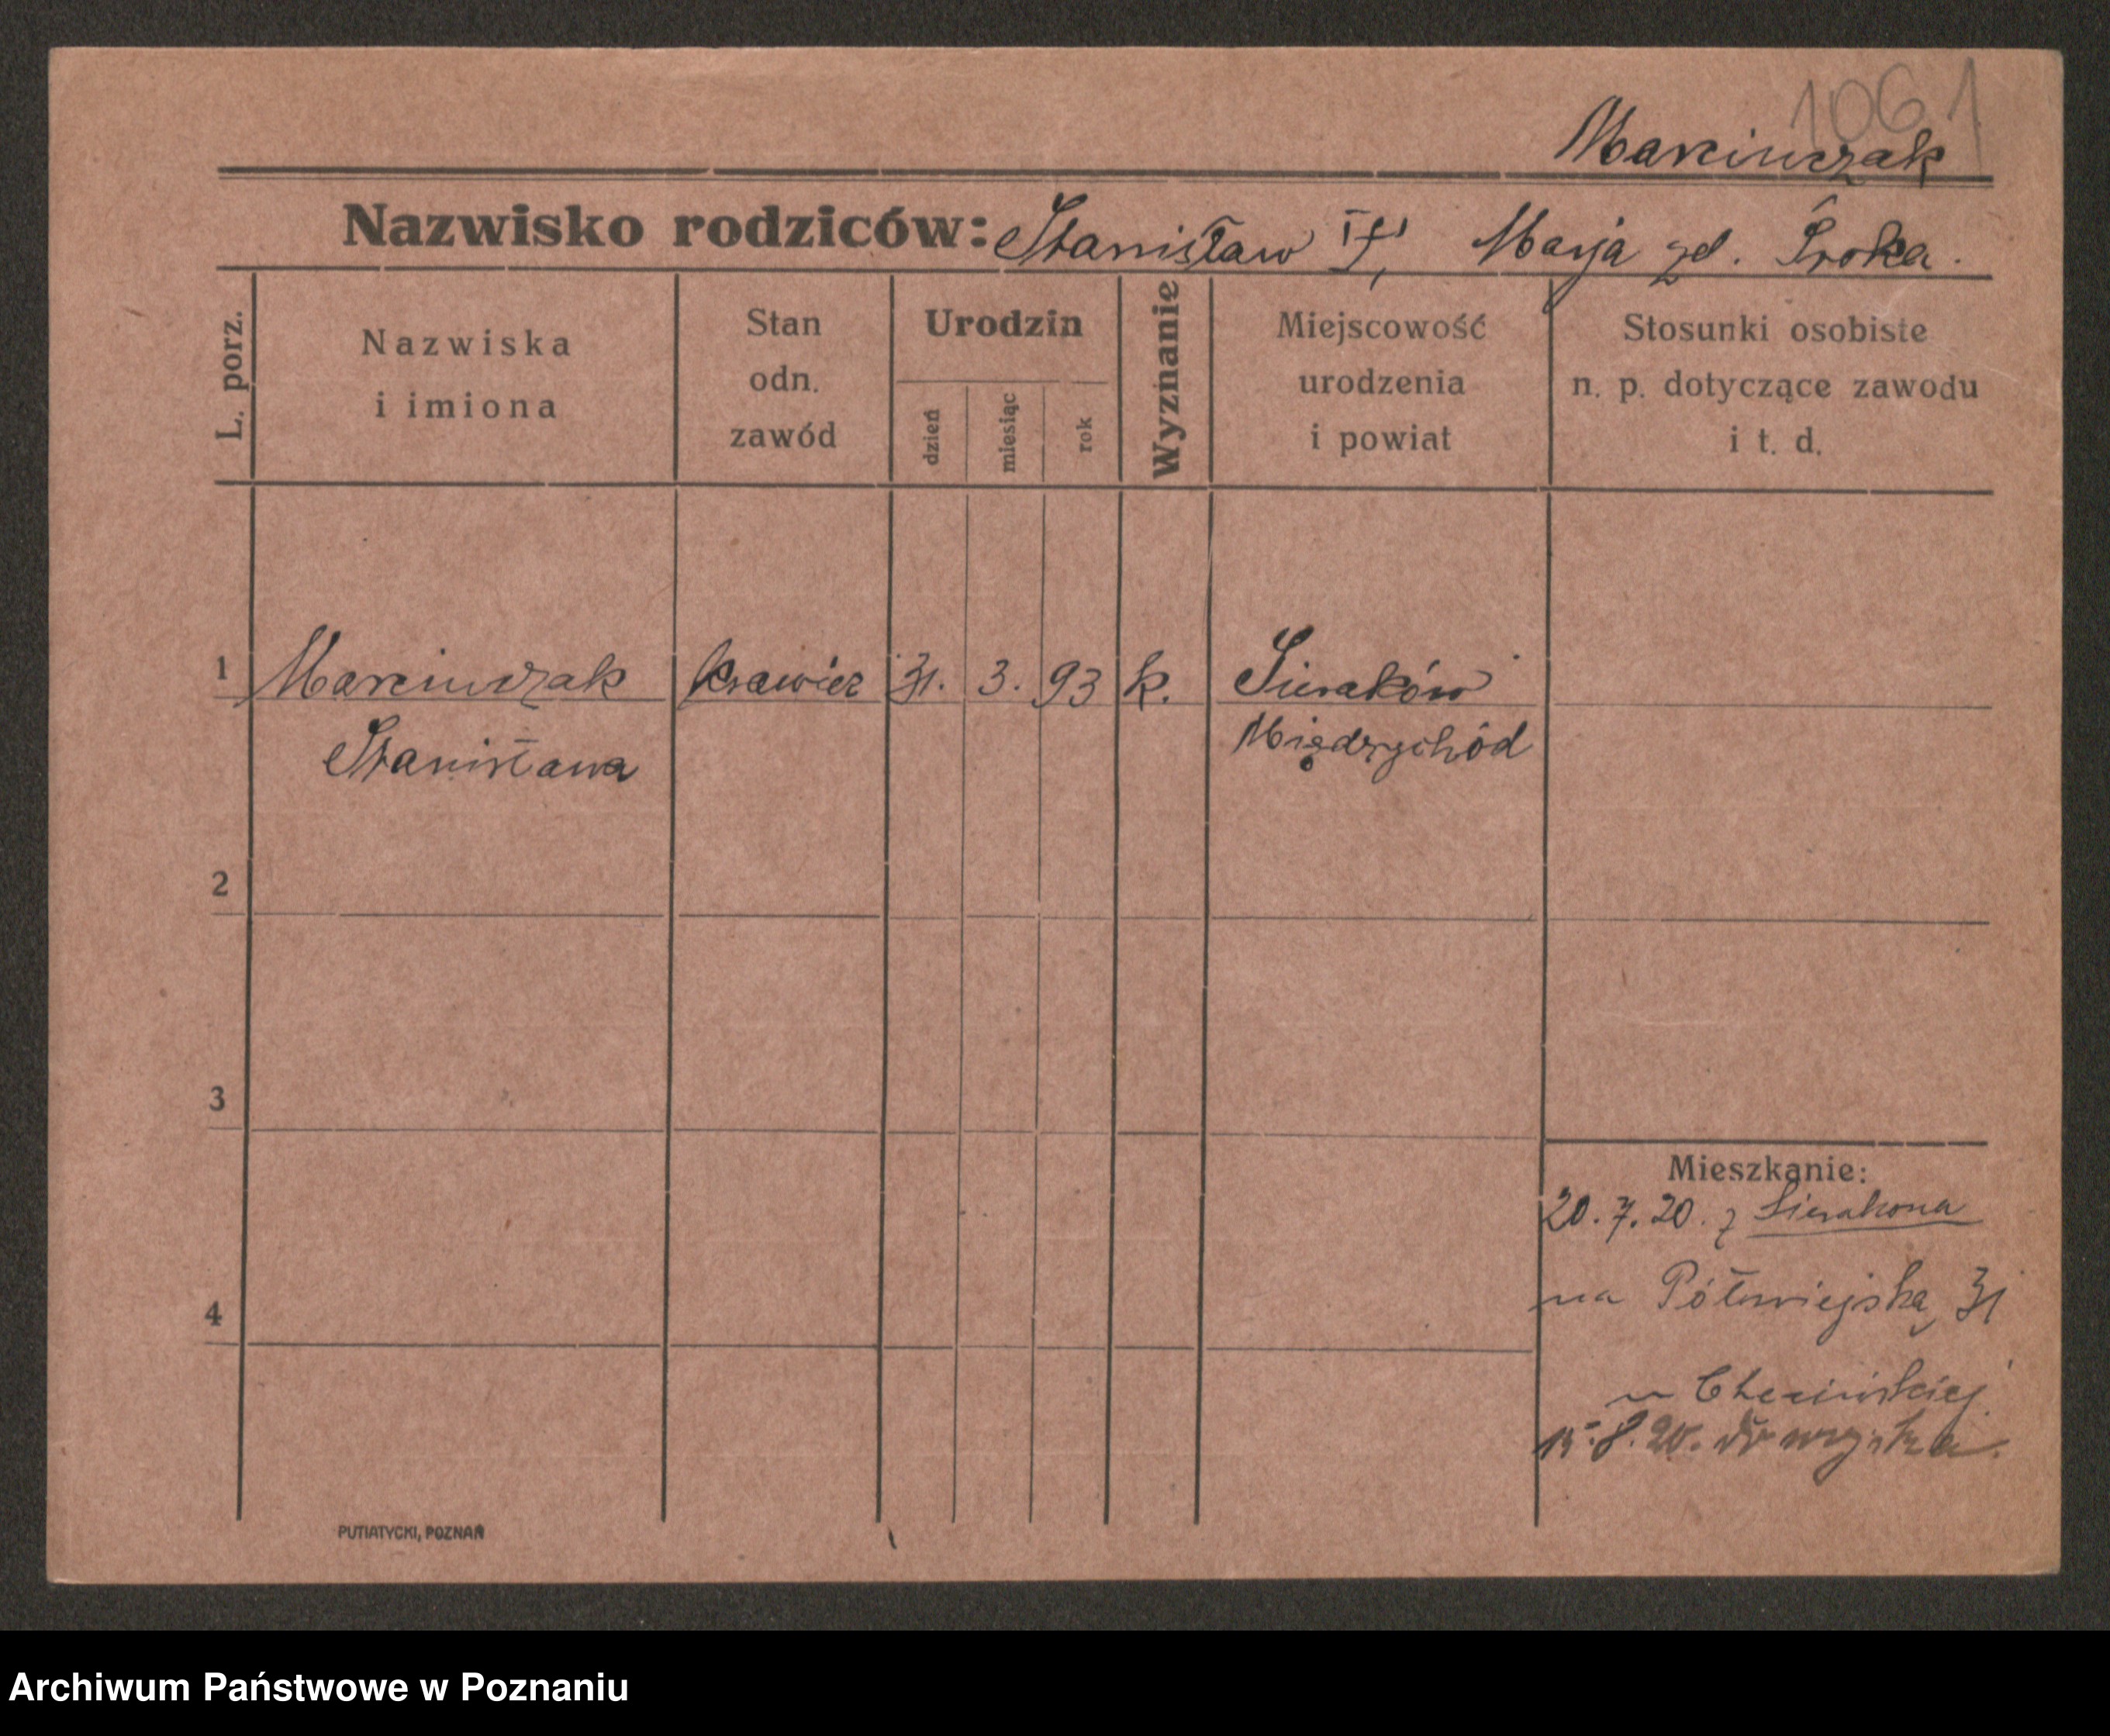 1061
Marcinczak
Nazwisko rodziców: Stanisław †, Marja zd. Śroka.
L. porz.
Nazwiska
i imiona
Stan
odn.
zawód
Urodzin
dzień
miesiąc
rok
Wyznanie
Miejscowość
urodzenia
i powiat
Stosunki osobiste
n. p. dotyczące zawodu
i t. d.
1 Marcinczak krawiec 31. 3. 93 k. Sieraków
Stanisława Międzychód
2
3
4
Mieszkanie:
20.7.20. z Sierakowa
na Półwiejską 31
u
15.8.20. do wojska.
PUTIATYCKI, POZNAŃ
Archiwum Państwowe w Poznaniu